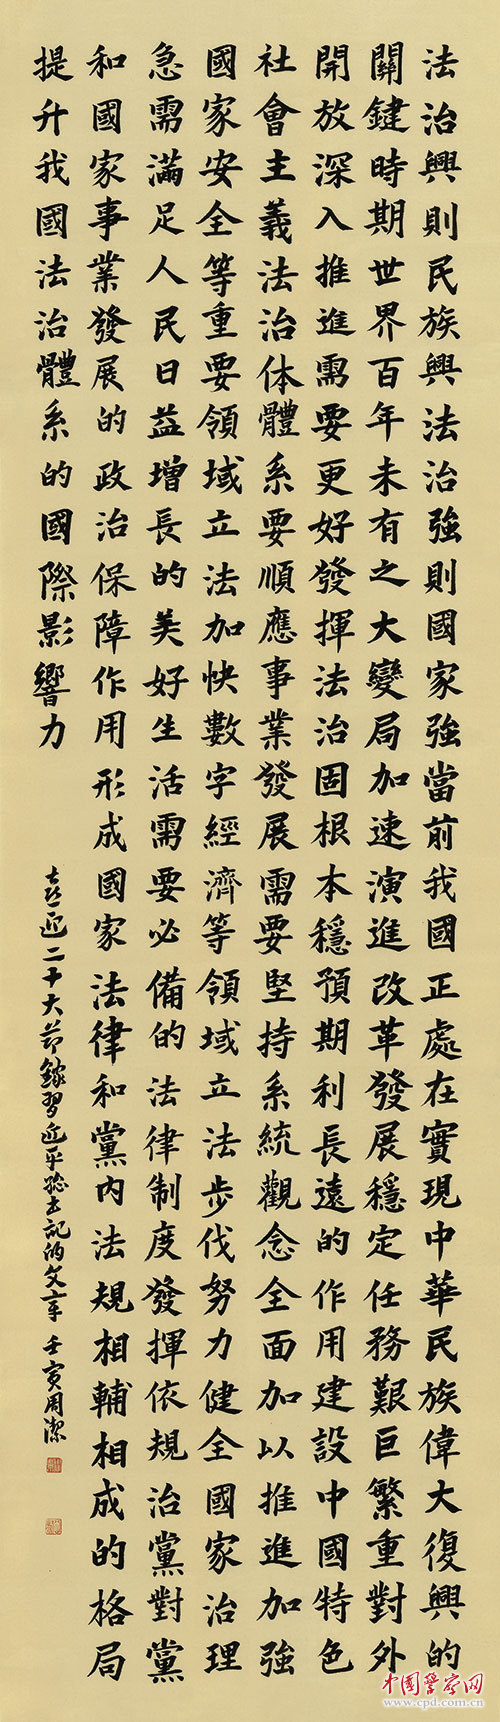 法治興則民族興法治強則國家強當前我國正處在實現中華民族偉大復興的
關鍵時期世界百年未有之大變局加速演進改革發展穩定任務艱巨繁重對外
開放深入推進需要更好發揮法治固根本穩預期利長遠的作用建設中國特色
社會主義法治体體系要順應事業發展需要堅持系統觀念全面加以推進加強
國家安全等重要領域立法加快數字經濟等領域立法步伐努力健全國家治理
急需滿足人民日益增長的美好生活需要必備的法律制度發揮依規治黨對黨
和國家事業發展的政治保障作用形成國家法律和黨内法規相輔相成的格局
提升我國法治體系的國際影響力
喜迎二十大節錄習近平總书記的文章 壬寅周潔
中国警察网
www.cpd.com.cn